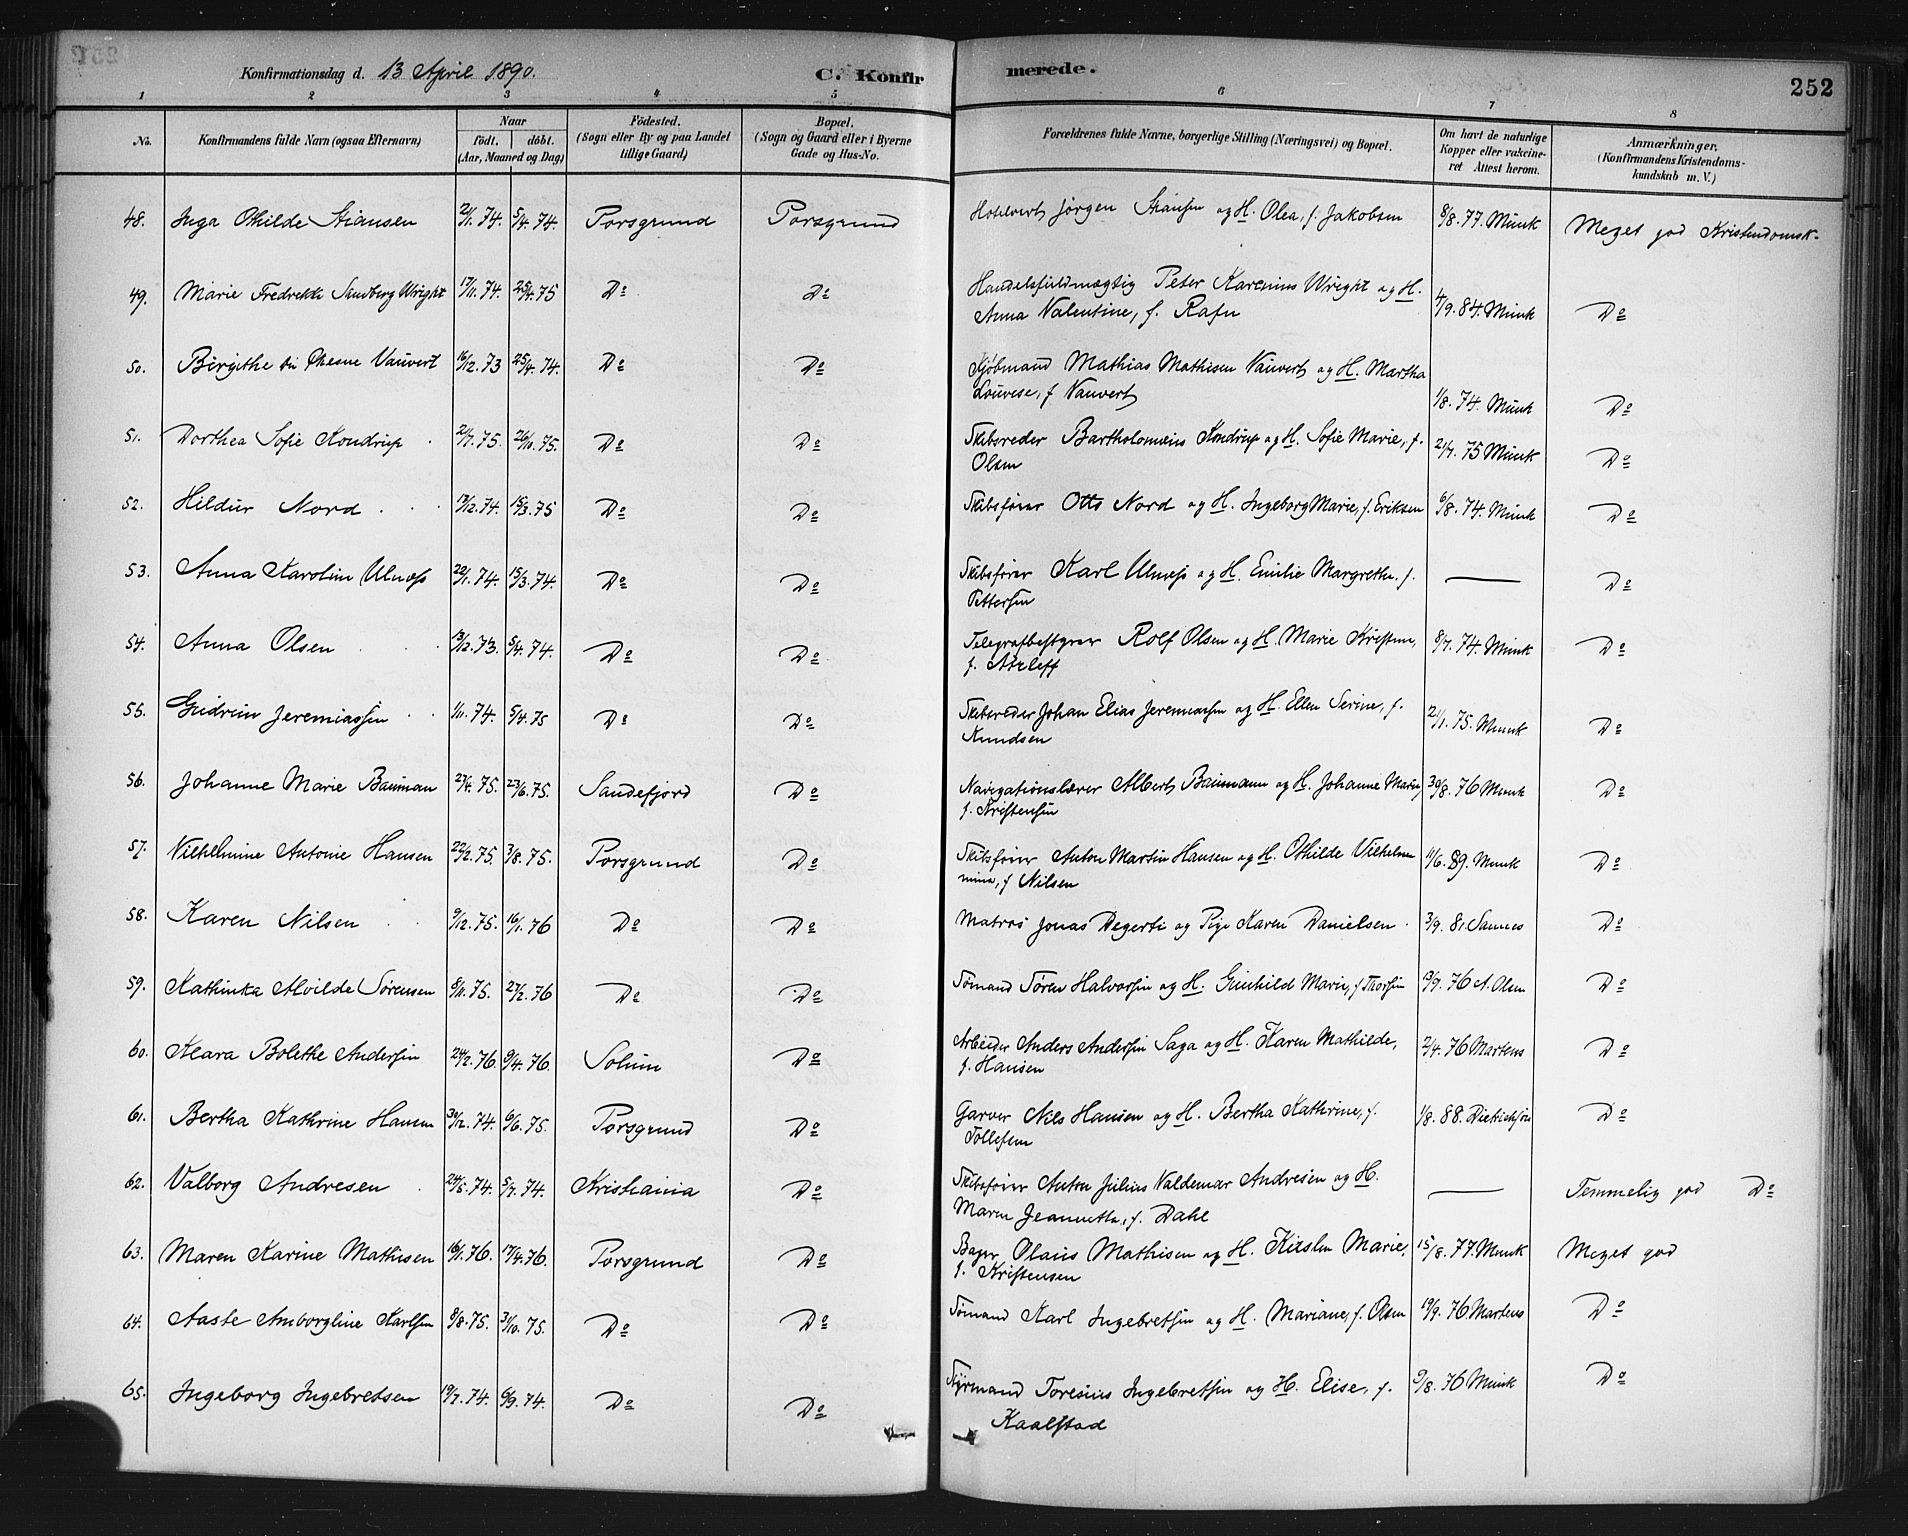 Konfirmationsdag d. 13 April 1890. C. Konfirmerede. 252
1 2 3 4 5 6 7 8
No. Konfirmandens fulde Navn (ogsaa Efternavn) Naar födt. döbt. (Aar, Maaned og Dag) Födested. (Sogn eller By og paa Landet tillige Gaard) Bopæl. (Sogn og Gaard eller i Byerne Gade og Hus-No. Forældrenes fulde Navne, borgerlige Stilling (Næringsvei) og Bopæl. Om havt de naturlige Kopper eller vakcineret Attest herom. Anmærkninger, (Konfirmandens Kristendomskundskab m. V.)
48. Inga Othilde Stiansen 2/1. 74. 5/4. 74. Porsgrund Porsgrund Hotelvert Jørgen Stiansen og H. Olea, f. Jakobsen 8/8. 77. Munk Meget god Kristendomsk.
49. Marie Fredrikke Sandberg Wright 17/11. 74. 25/4. 75 Do Do Handelsfuldmægtig Peter Karenius Wright og H.
Anna Valentine, f. Rafn 4/9. 84. Munk Do
50. Birgithe Vauvert 16/12. 73 25/4. 74. Do Do Kjøbmand Mathias Mathisen Vauvert og H. Martha
Lovise, f Vauvert 1/8. 74. Munk Do
51. Dorthea Sofie Kondrup 2/7. 75. 26/10. 75. Do Do Skibsreder Bartholomæus Kondrup og H. Sofie Marie, f.
Olsen 21/7. 75 Munk Do
52. Hildur Nord 17/12. 74. 15/3. 75 Do Do Skibsfører Otto Nord og H. Ingeborg Marie, f. Eriksen 6/8. 74. Munk Do
53. Anna Karoline Ulnæss 22/1. 74. 15/3. 74. Do Do Skibsfører Karl Ulnæss og H. Emilie Margrethe, f. — Do
Pettersen
54. Anna Olsen 13/12. 73. 5/4. 74. Do Do Telegrafbestyrer Rolf Olsen og H. Marie Kristine, 8/7. 74. Munk Do
f.
55. Gudrun Jeremiassen 1/11. 74. 5/4. 75 Do Do Skibsreder Johan Elias Jeremiassen og H. Ellen Serine, f.
Knudsen 21/1. 75. Munk Do
56. Johanne Marie Bauman 27/4. 75. 23/6. 75. Sandefjord Do Navigationslærer Albert Baumann og H. Johanne Marie, 30/8. 76 Munk Do
f. Kristensen
57. Vilhelmine Antonie Hansen 22/2. 75. 3/8. 75. Porsgrund Do Skibsfører Anton Martin Hansen og H. Othilde Vilhelm
mine, f Nilsen 11/6. 89. Munk Do
58. Karen Nilsen 9/12. 75. 16/1. 76 Do Do Matros Jonas Degerti og Pige Karen Danielsen. 3/9. 81. Sannes Do
59. Kathinka Alvilde Sørensen 8/11. 75. 27/2. 76 Do Do Sømand Søren Halvorsen og H. Gunhild Marie, f Thorsen 13/9. 76 A. Olsen Do
60. Klara Bolethe Andersen 24/2. 76. 9/4. 76. Solum Do Arbeider Anders Andersen Saga og H. Karen Mathilde, 2/4. 76 Martens Do
f. Hansen
61. Bertha Kathrine Hansen 30/12. 74. 6/6. 75. Porsgrund Do Garver Nils Hansen og H. Bertha Kathrine, f. 1/8. 88. Dietrichson Do
Tollefsen
62. Valborg Andresen 24/5. 74. 5/7. 74. Kristiania Do Skibsfører Anton Julius Valdemar Andresen og H. — Temmelig god Do
Maren Jeannette, f. Dahl
63. Maren Karine Mathisen 16/1. 76. 17/4. 76. Porsgrund Do Bager Olaus Mathisen og H. Kirsten Marie, 15/8. 77. Munk Meget god
f. Kristensen
64. Aaste Amborgline Karlsen 8/8. 75. 3/10. 75. Do Do Sømand Karl Ingebretsen og H. Mariane, f. Olsen 19/9. 76. Martens Do
65. Ingeborg Ingebretsen 19/7. 74. 6/9. 74. Do Do Styrmand Toresius Ingebretsen og H. Elise, f. 9/8. 76 Munk Do
Kaalstad